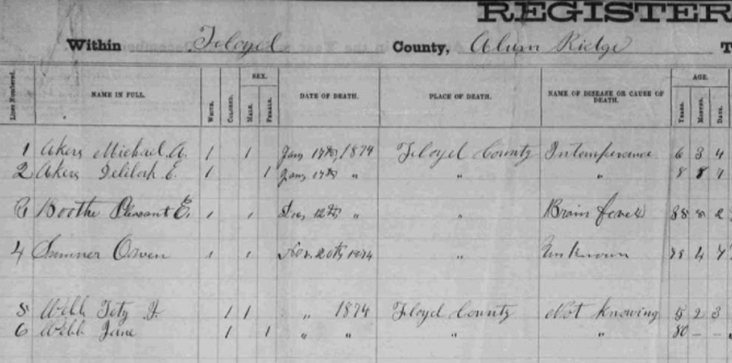 REGISTER
Within Floyd County, Alum Ridge
Lines Numbered. NAME IN FULL. WHITE. COLORED. SEX. MALE. FEMALE. DATE OF DEATH. PLACE OF DEATH. NAME OF DISEASE OR CAUSE OF DEATH. AGE. YEARS. MONTHS. DAYS.
1 Akers Michael A. 1 1 Jany 17th, 1874 Floyd County Intemperance 6 3 4
2 Akers Delilah E. 1 1 Jany 17th " " " 8 8
Boothe Pleasant E. 1 1 12th " " Brain fever 2
4 Sumner Owen 1 1 Nov. 20th 1874 " Unknown 4
5 Webb J. 1 1 " 1874 Floyd County Not Knowing 5 2 3
6 Webb Jane 1 1 " " " " 80 - -